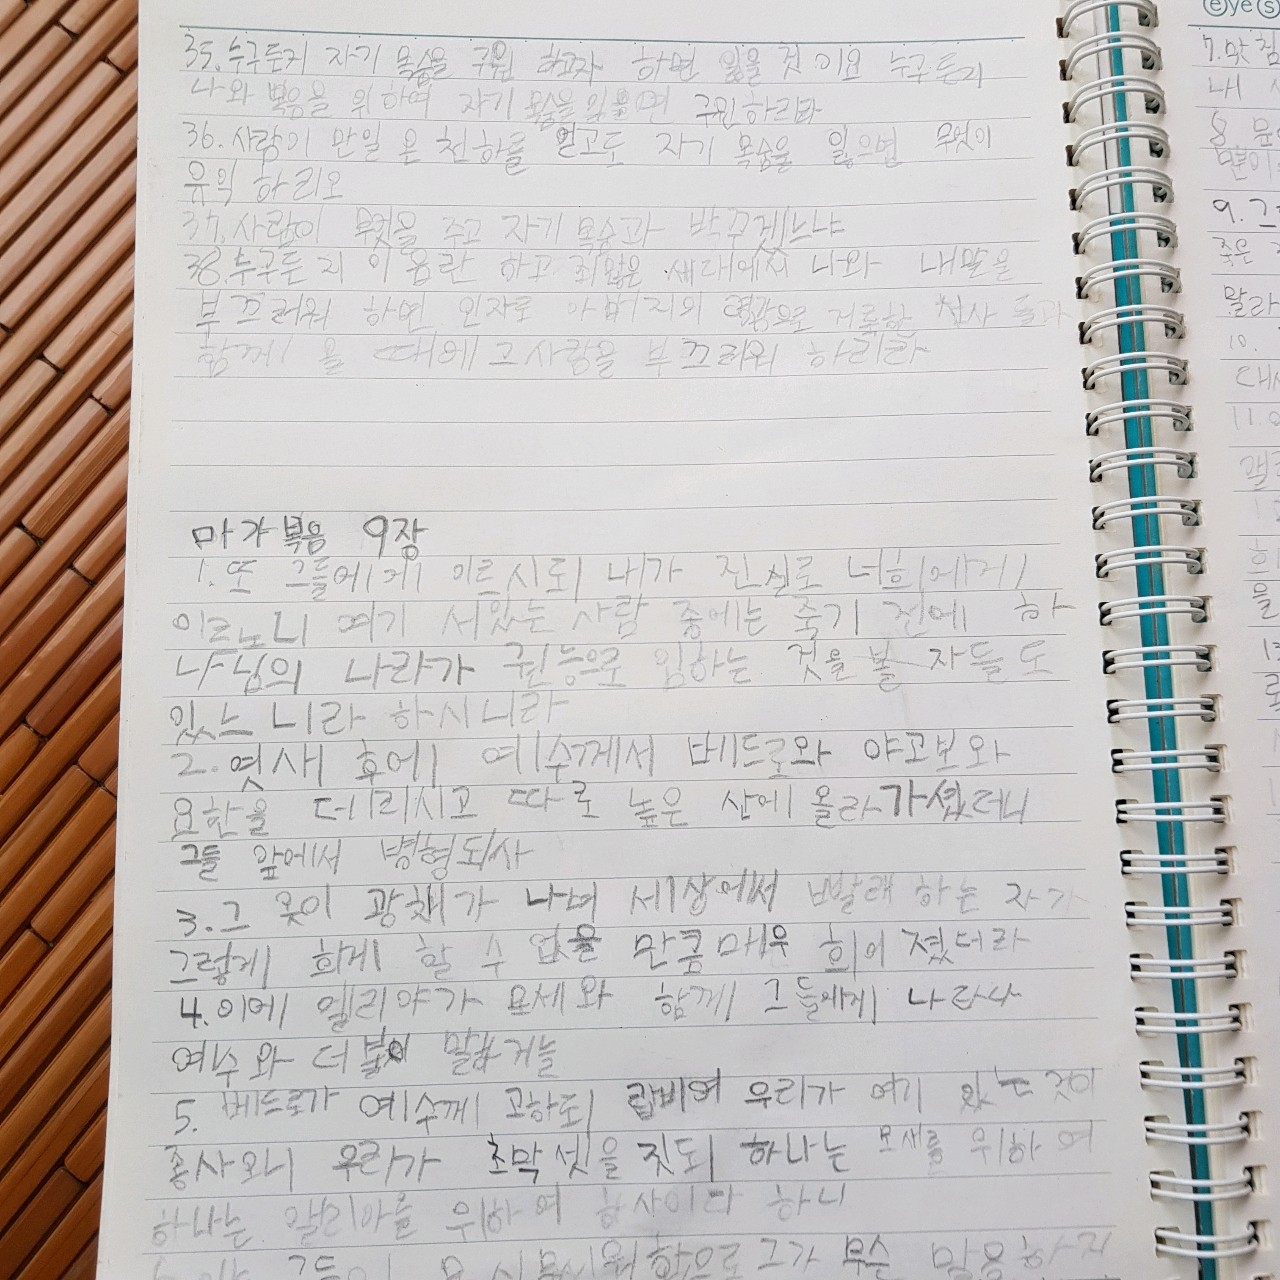 35. 누구든지 자기 목숨을 구원 하고자 하면 잃을 것 이요 누구든지
나와 복음을 위하여 자기 목숨을 잃으면 구원하리라
36. 사람이 만일 온 천하를 얻고도 자기 목숨을 잃으면 무엇이
유익 하리오
37. 사람이 무엇을 주고 자기 목숨과 바꾸겠느냐
38. 누구든 지 이 음란 하고 죄많은 세대에서 나와 내말을
부끄러워 하면 인자도 아버지의 영광으로 거룩한 천사 들과
함께 올 때에 그사람을 부끄러워 하리라
마가복음 9장
1. 또 그들에게 이르시되 내가 진실로 너희에게
이르노니 여기 서있는 사람 중에는 죽기 전에 하
나님의 나라가 권능으로 임하는 것을 볼 자들도
있느 니라 하시니라
2. 엿새 후에 예수께서 베드로와 야고보와
요한을 데리시고 따로 높은 산에 올라가셨더니
그들 앞에서 변형되사
3. 그 옷이 광채가 나며 세상에서 빨래 하는 자가
그렇게 희게 할 수 없을 만큼 매우 희어 졌더라
4. 이에 엘리야가 모세와 함께 그들에게 나타나
예수와 더불어 말하거늘
5. 베드로가 예수께 고하되 랍비여 우리가 여기 있는 것이
좋사오니 우리가 초막 셋을 짓되 하나는 모세를 위하여
하나는 엘리야를 위하여 하사이다 하니
7. 맞
내
8
9. 그
죽은
말라
10.
11.